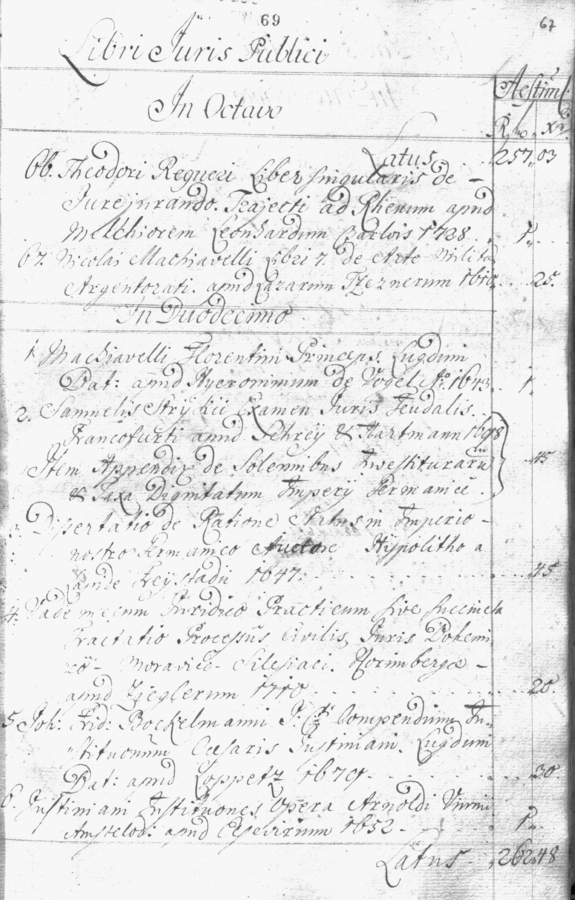 69
67
Libri Juris Publici
Aestim
In Octavo
R xr
Latus 257.,03
66. Theodori Regneri Liber singularis de –
Jurejurando. Trajecti ad Rhenum apud
Melchiorem Leonhardum 1728 . 1„
67. Nicolai Machiavelli Libri 7. de Arte Milita
Argentorati. apud Lazarum Zeznerum . . 25.
In Duodecimo
1. Machiavelli Florentini Princeps. Lugduni
Bat: apud Hyeronimum de Vogel Ao. 1643. 1.
2. Samuelis Strykii Examen Juris Feudalis.
Francofurti apud Schrey & Hartmann 1698
Item Appendix de Solennibus Investituraru . 45
& Taxa Dignitatum Imperij Germanici
3. Dissertatio de Ratione Status in Imperio –
nostro Germanico Auctore Hypolitho a
Lapide Freystadii 1647. . . . . 45
4. Vade mecum Juridico Practicum sive succincta
Tractatio Processus Civilis, Juris Bohemi
co – Moravico – Silesiaci. Norimbergae –
apud Zieglerum 1710 . . . . . 20.
5. Joh: Frid: Böckelmanni Compendium In„
stitutionum Caesaris Justiniani. Lugduni
Bat: apud 1679. . . . . 30
6. Justiniani Institutiones Opera Arnoldi Vinnii
Amstelod: apud Elzevirium 1652 . . . 1„
Latus . 262.,48